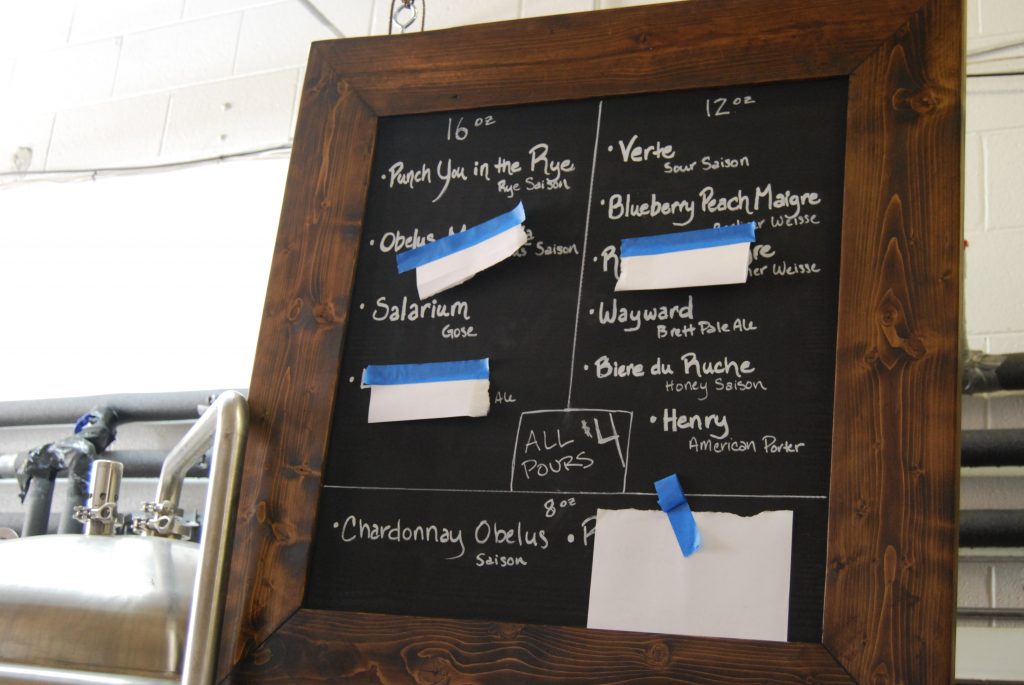 16 oz
• Punch You in the Rye
Rye Saison
• Obelus
Saison
• Salarium
Gose
•
Ale
12 oz
• Verte
Sour Saison
• Blueberry Peach Maigre
Weisse
•
Weisse
• Wayward
Brett Pale Ale
• Biere du Ruche
Honey Saison
• Henry
American Porter
ALL $4
POURS
8 oz
• Chardonnay Obelus •
Saison